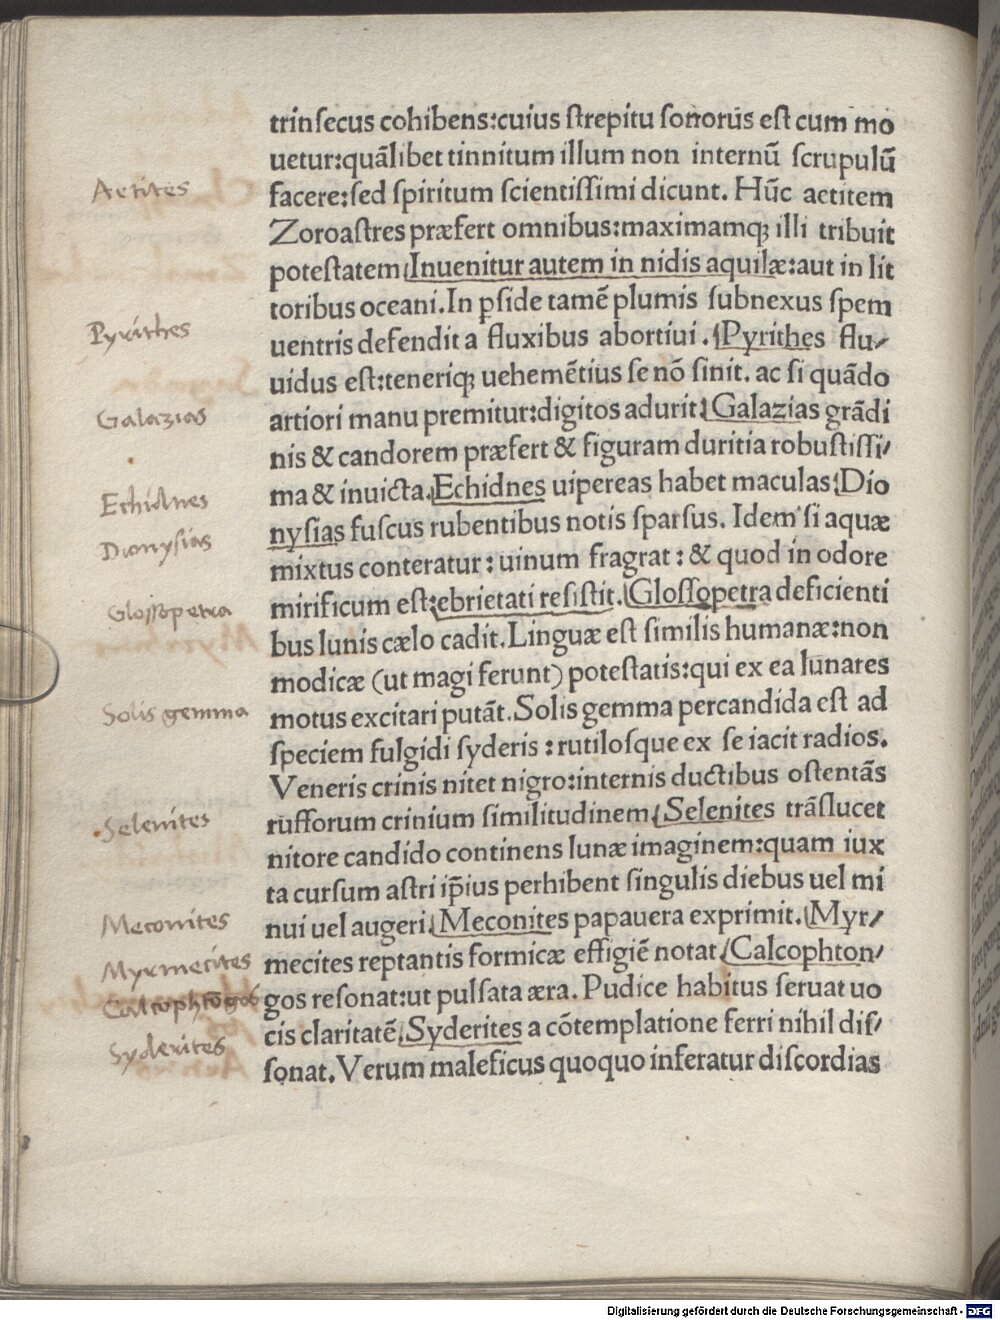 trinſecus cohibens:cuius ſtrepitu ſonorus eſt cum mo
uetur:quālibet tinnitum illum non internū ſcrupulū
Aetites
facere:ſed ſpiritum ſcientiſſimi dicunt. Hūc aetitem
Zoroaſtres præfert omnibus:maximamqꝫ illi tribuit
poteſtatem. Inuenitur autem in nidis aquilæ:aut in lit
toribus oceani. In ꝑſide tamē plumis ſubnexus ſpem
Pyrithes
uentris defendit a fluxibus abortiui. Pyrithes flu/
uidus eſt:teneriqꝫ uehemētius ſe nō ſinit. ac ſi quādo
Galazias
artiori manu premitur:digitos adurit. Galazias grādi
nis & candorem præfert & figuram duritia robuſtiſſi/
Echidnes
ma & inuicta. Echidnes uipereas habet maculas. Dio
Dionysias
nyſias fuſcus rubentibus notis ſparſus. Idem ſi aquæ
mixtus conteratur: uinum fragrat: & quod in odore
Glossopetra
mirificum eſt:ebrietati reſiſtit. Gloſſopetra deficienti
bus lunis cælo cadit. Linguæ eſt ſimilis humanæ:non
modicæ (ut magi ferunt) poteſtatis:qui ex ea lunares
Solis gemma
motus excitari putāt. Solis gemma percandida eſt ad
ſpeciem fulgidi ſyderis: rutiloſque ex ſe iacit radios.
Veneris crinis nitet nigro:internis ductibus oſtentās
Selenites
rufforum crinium ſimilitudinem. Selenites trāſlucet
nitore candido continens lunæ imaginem:quam iux
ta curſum aſtri ip̄ius perhibent ſingulis diebus uel mi
Meconites
nui uel augeri. Meconites papauera exprimit. Myr/
Myrmecites
mecites reptantis formicæ effigiē notat. Calcophton/
Calcophtōgos
gos reſonat:ut pulſata æra. Pudice habitus ſeruat uo
Syderites
cis claritatē. Syderites a cōtemplatione ferri nihil diſ/
ſonat. Verum maleficus quoquo inferatur diſcordias
Digitalisierung gefördert durch die Deutsche Forschungsgemeinschaft - DFG